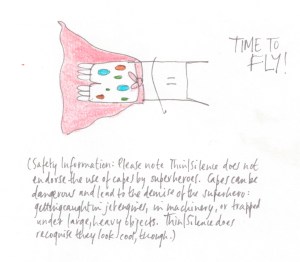 TIME TO
FLY!
(Safety Information: Please note Thin/Silence does not
endorse the use of capes by superheroes. Capes can be
dangerous and lead to the demise of the superhero:
getting caught in jet engines, in machinery, or trapped
under large, heavy objects. Thin/Silence does
recognise they look cool, though.)